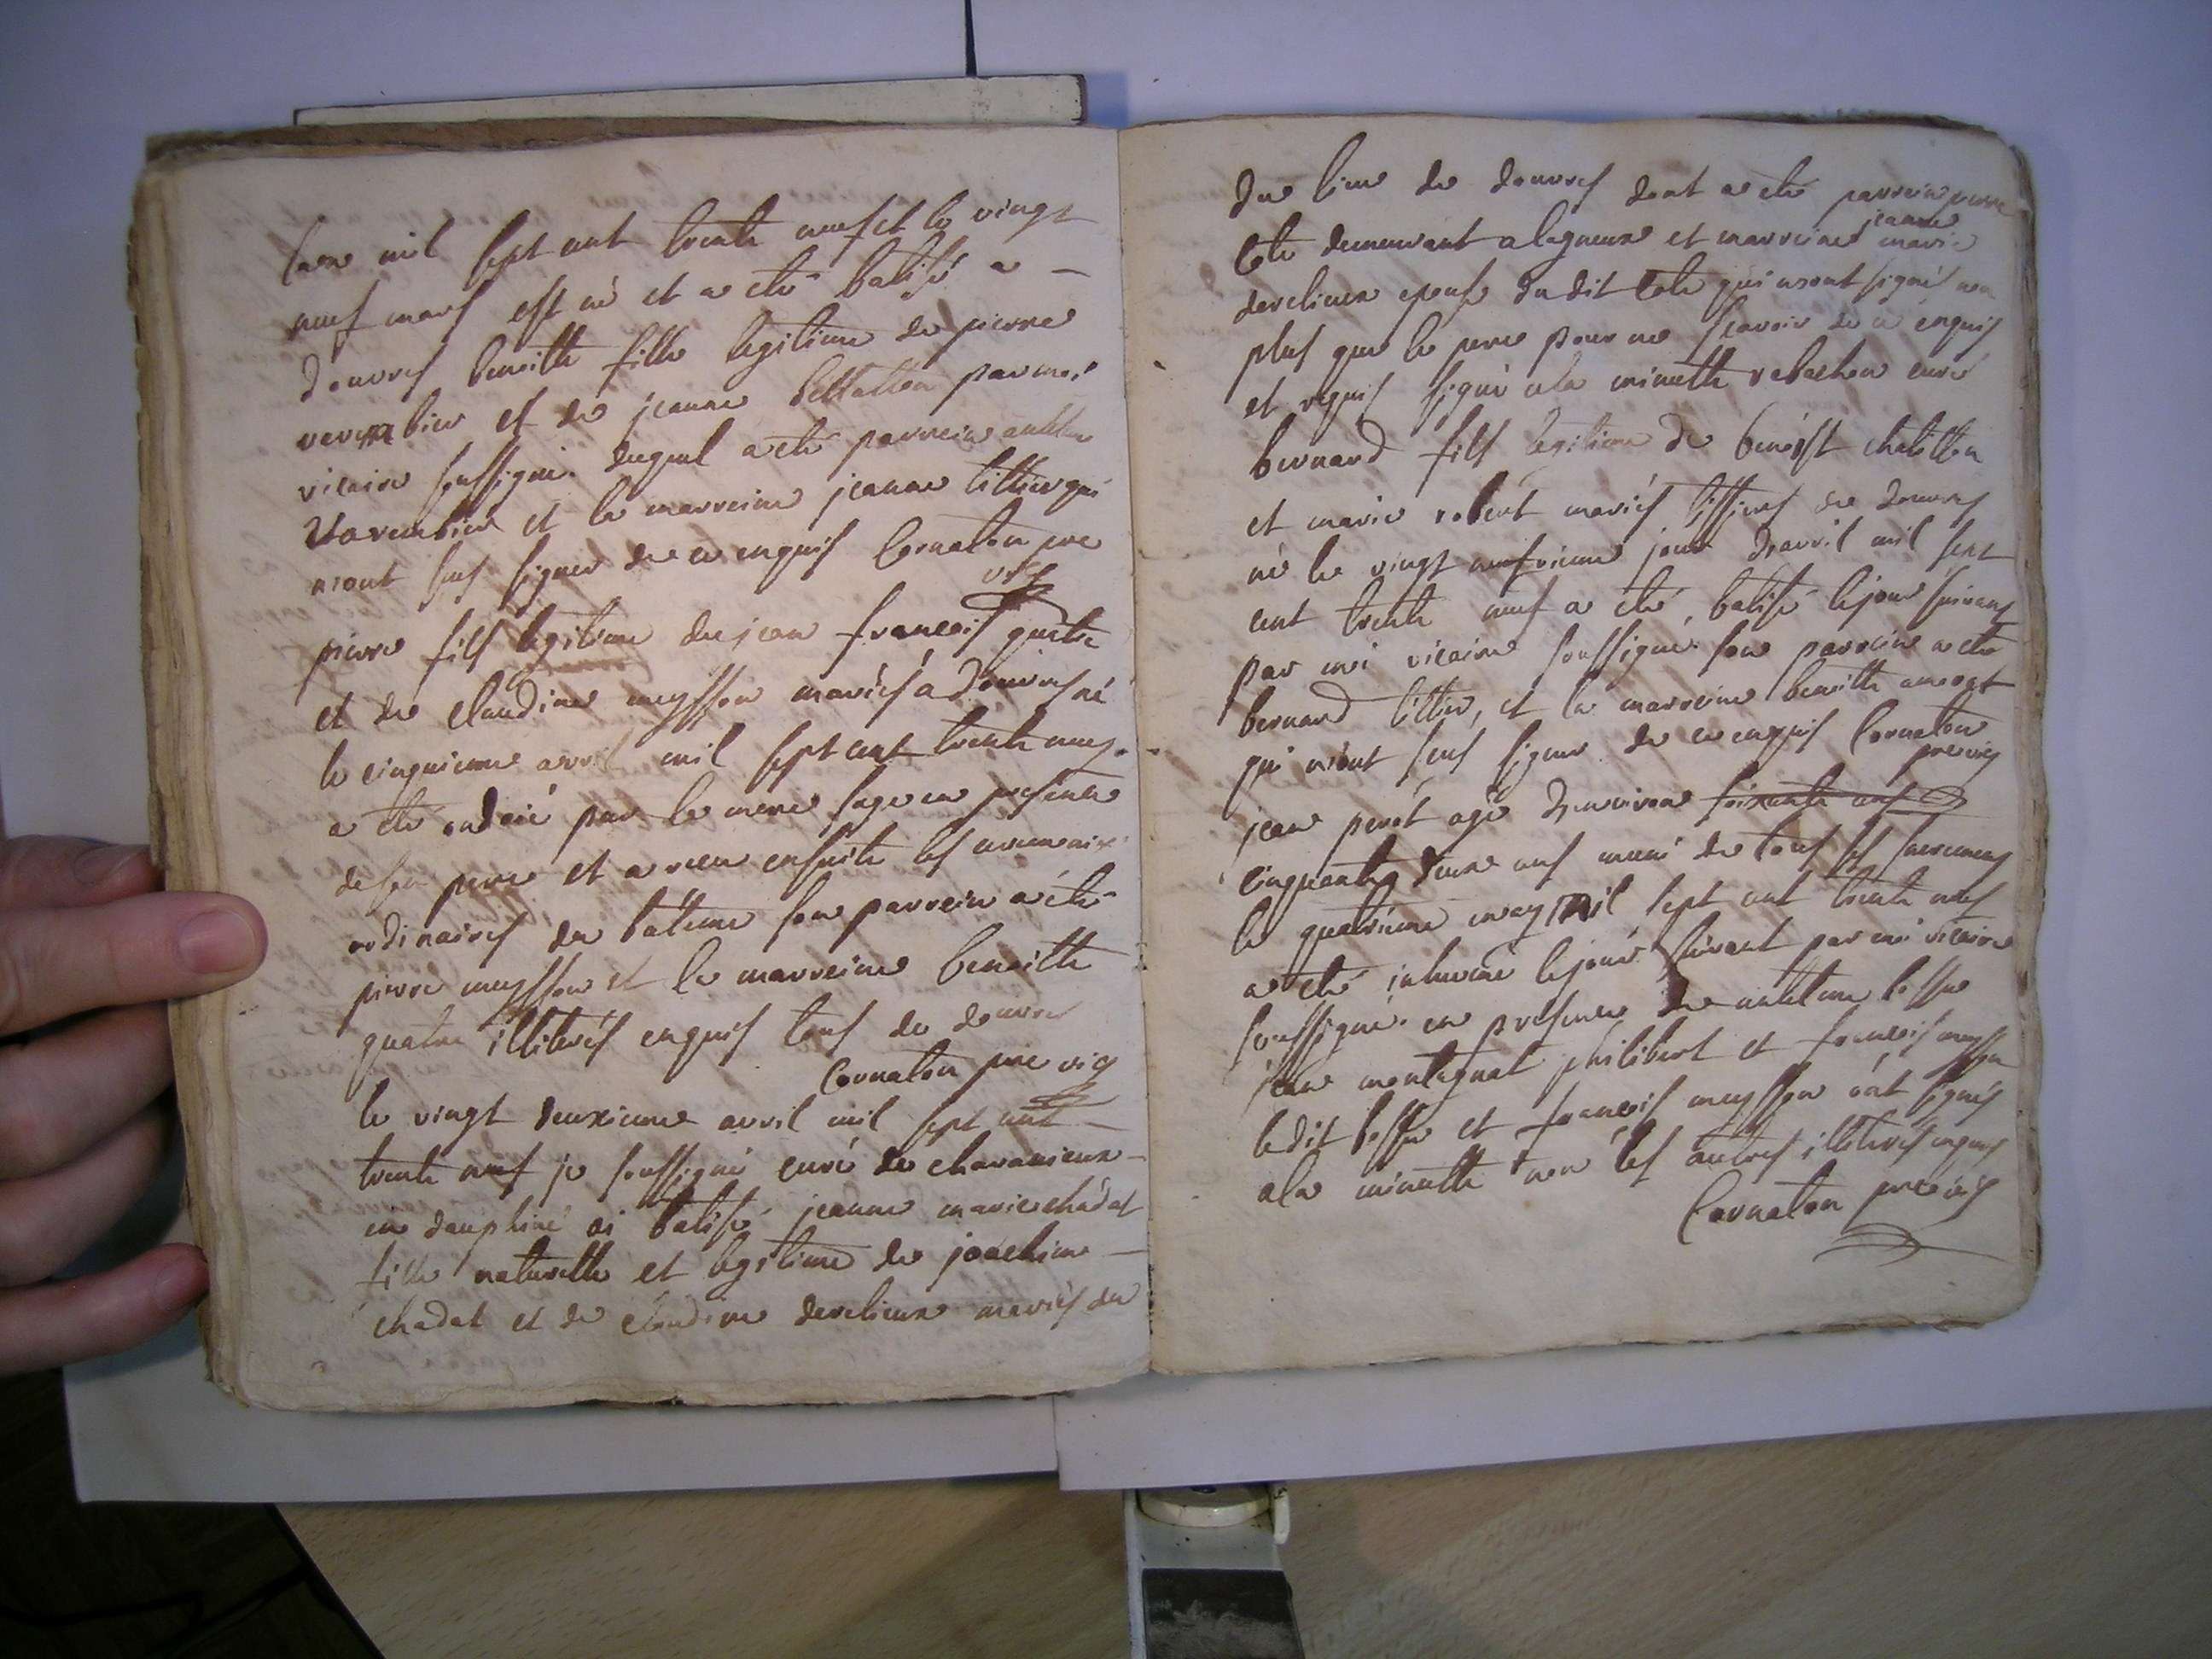 lan mil sept cent trente neuf et le vingt
neuf mars est né et a eté batisé a
douvres benoitte fille legitime de pierre
varembier et de jeanne par moi
vicaire soussigné. duquel a eté parrein
Varembier et la marreine jeanne qui
n'ont sçus signer de ce enquis Cornaton pre
vic
pierre fils legitime de jean francois
et de claudine meysson mariés a douvres né
le cinquieme avril mil sept cent trente neuf.
a eté ondoié par la mere sage en presence
de son pere et a receu ensuite les ceremonies
ordinaires du bâteme son parrein a eté
pierre meysson et la marreine benoitte
quatre illiterés enquis tous de douvres
Cornaton pre vic
le vingt deuxieme avril mil sept cent
trente neuf je soussigné curé de chavanieux
en dauphiné ai batisé jeanne marie chadat
fille naturelle et legitime de joachim
chadat et de claudine derelieux mariés du
du lieu de douvres dont a eté parrein pierre
Cote demeurant a lagneux et marreine jeanne marie
derelieux epouse du dit Cote qui n'ont signé non
plus que le pere pour ne sçavoir de ce enquis
et requis signé a la minutte curé
bernard fils legitime de benoist chatillon
et marie robert mariés de douvres
né le vingt neufvieme jour d'avril mil sept
cent trente neuf a eté batisé le jour suivant
par moi vicaire soussigné. son parrein a eté
bernard et la marreine benoitte
qui n'ont sçus signer de ce enquis Cornaton
pre vic
jean perot agé d'environ soixante ans
cinquante deux ans muni de tous les sacremens
le quatrieme may mil sept cent trente neuf
a eté inhumé le jour suivant par moi vicaire
soussigné. en presence de bossu
jean montagnat philibert et francois meysson
ledit bossu et francois meysson ont signés
a la minutte non les autres illiterés enquis
Cornaton pre vic